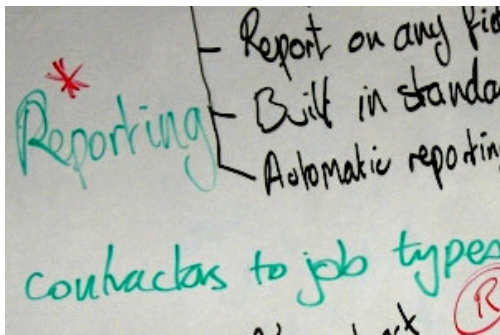 Report on any
Reporting
*
Built in standa
Automatic reporting
contractors to job types
R